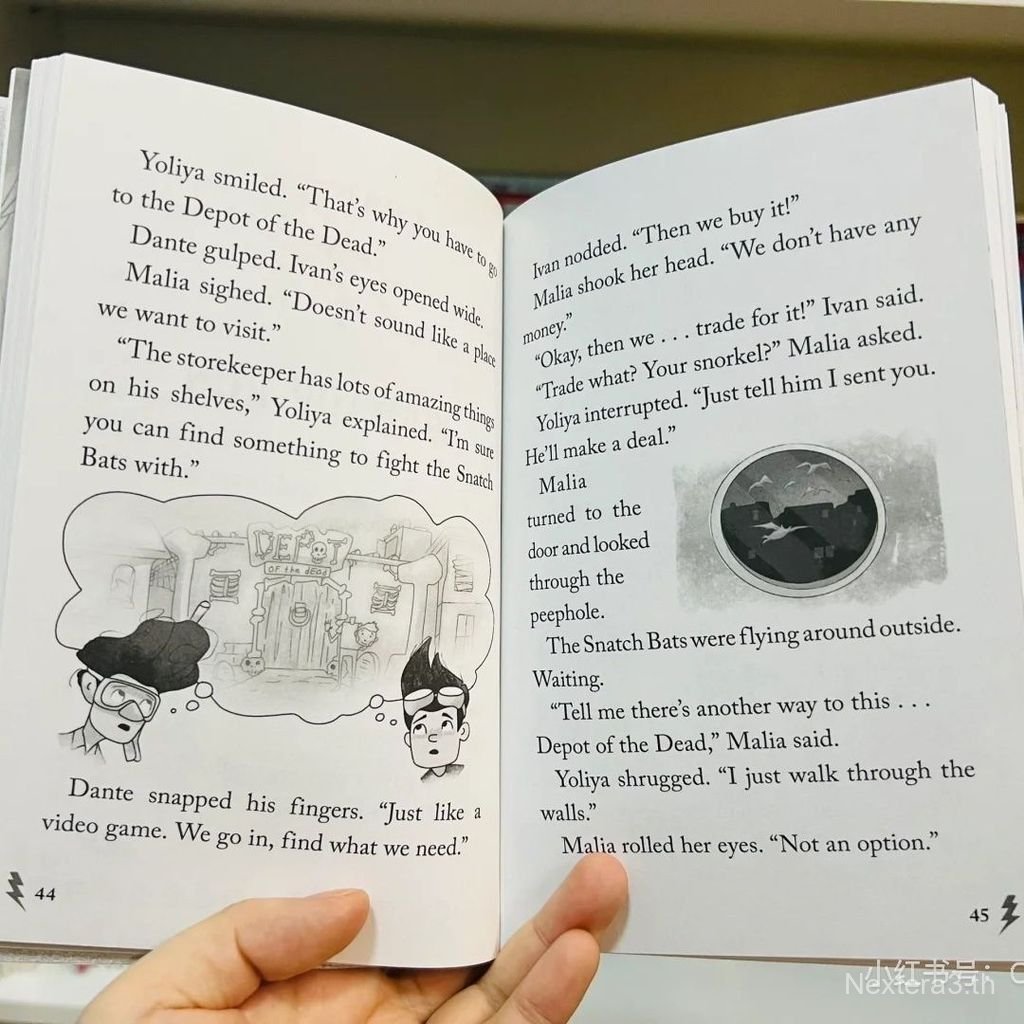 Yoliya smiled. “That’s why you have to go
to the Depot of the Dead.”
Dante gulped. Ivan’s eyes opened wide.
Malia sighed. “Doesn’t sound like a place
we want to visit.”
“The storekeeper has lots of amazing things
on his shelves,” Yoliya explained. “I’m sure
you can find something to fight the Snatch
Bats with.”
DEPOT
OF the dEAD
Dante snapped his fingers. “Just like a
video game. We go in, find what we need.”
44
Ivan nodded. “Then we buy it!”
Malia shook her head. “We don’t have any
money.”
“Okay, then we . . . trade for it!” Ivan said.
“Trade what? Your snorkel?” Malia asked.
Yoliya interrupted. “Just tell him I sent you.
He’ll make a deal.”
Malia
turned to the
door and looked
through the
peephole.
The Snatch Bats were flying around outside.
Waiting.
“Tell me there’s another way to this . . .
Depot of the Dead,” Malia said.
Yoliya shrugged. “I just walk through the
walls.”
Malia rolled her eyes. “Not an option.”
45
小红书号：
Nextera3.th